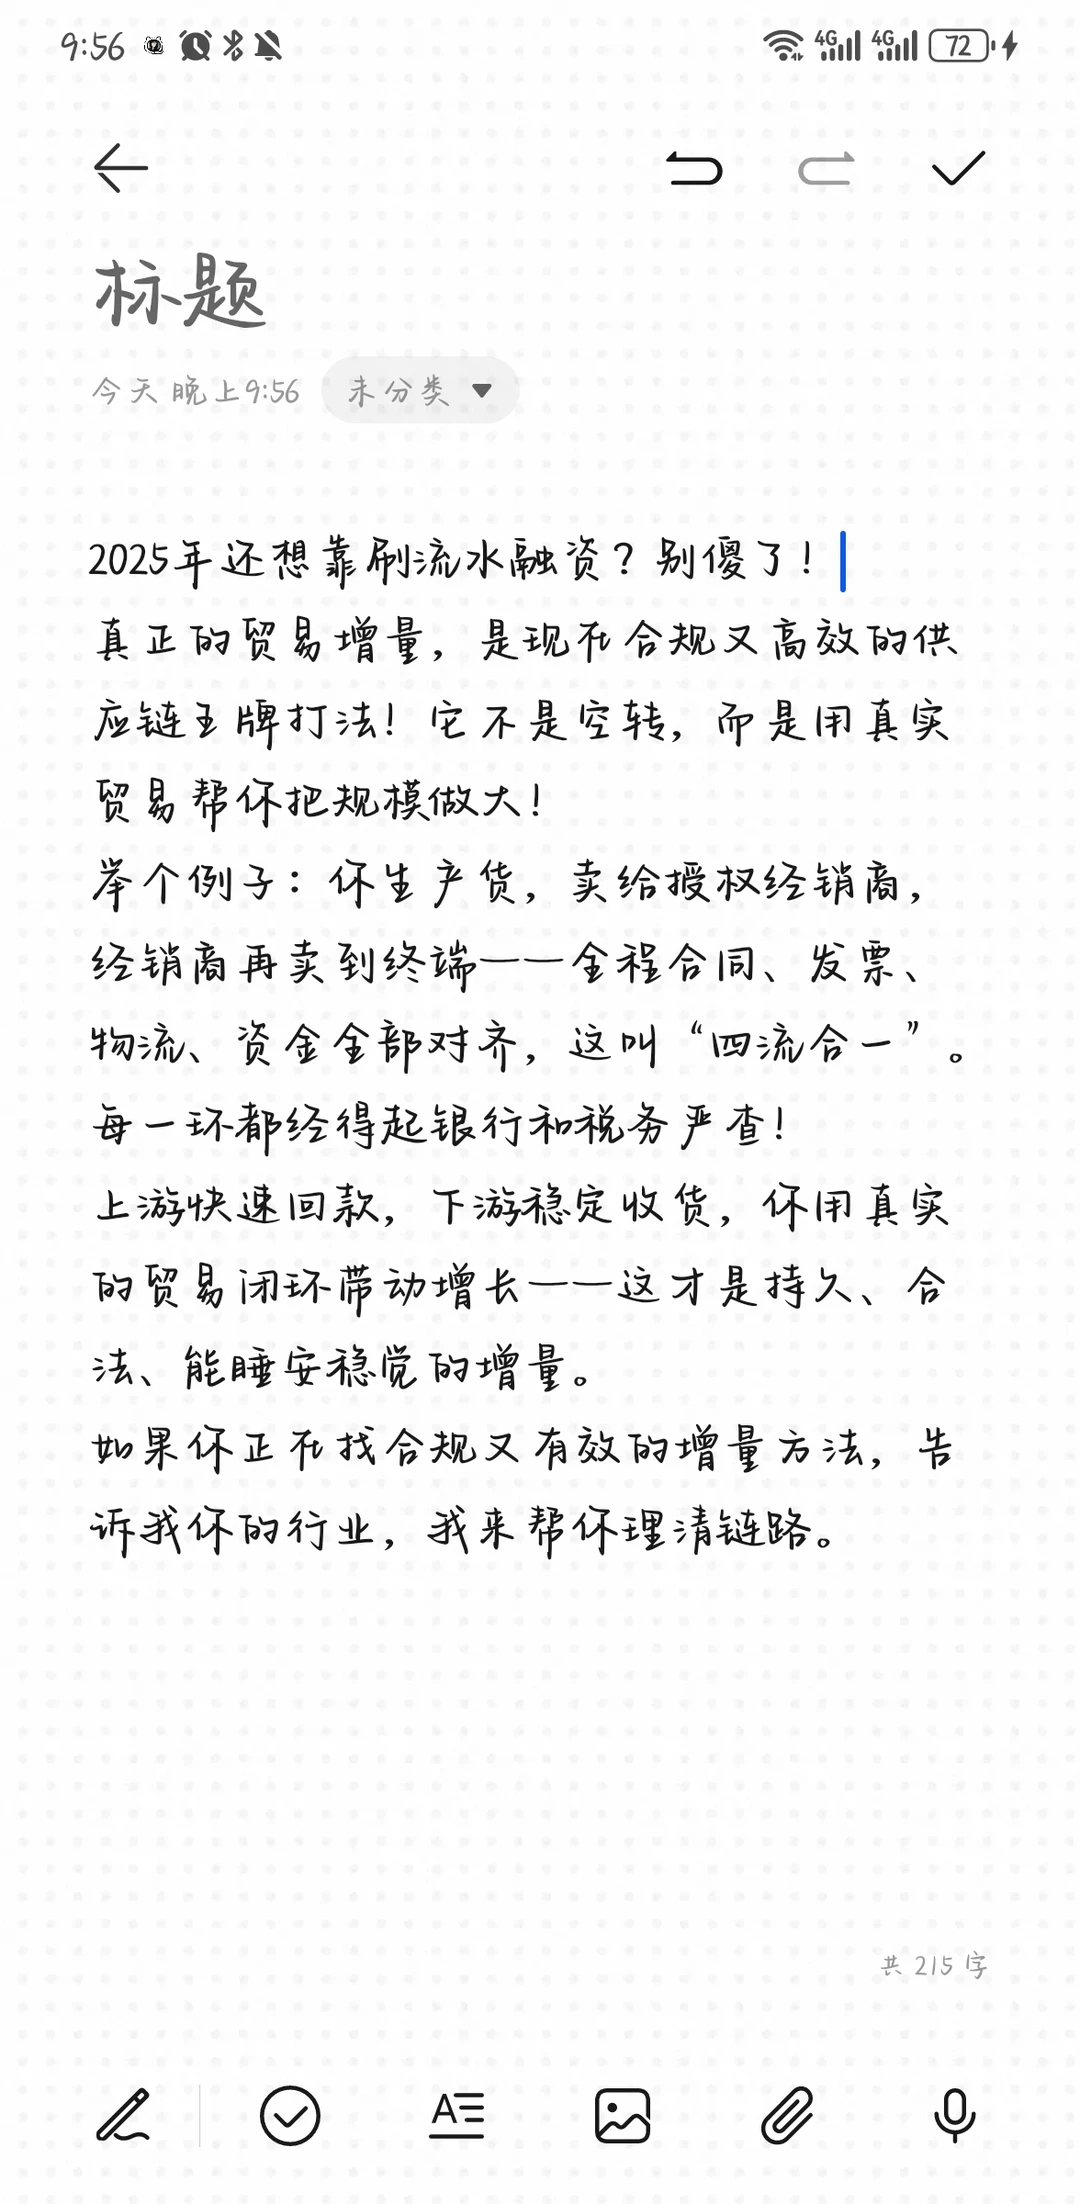 9:56 4G 4G 72
标题
今天 晚上9:56 未分类
2025年还想靠刷流水融资？别傻了！
真正的贸易增量，是现在合规又高效的供
应链王牌打法！它不是空转，而是用真实
贸易帮你把规模做大！
举个例子：你生产货，卖给授权经销商，
经销商再卖到终端——全程合同、发票、
物流、资金全部对齐，这叫“四流合一”。
每一环都经得起银行和税务严查！
上游快速回款，下游稳定收货，你用真实
的贸易闭环带动增长——这才是持久、合
法、能睡安稳觉的增量。
如果你正在找合规又有效的增量方法，告
诉我你的行业，我来帮你理清链路。
共 215 字